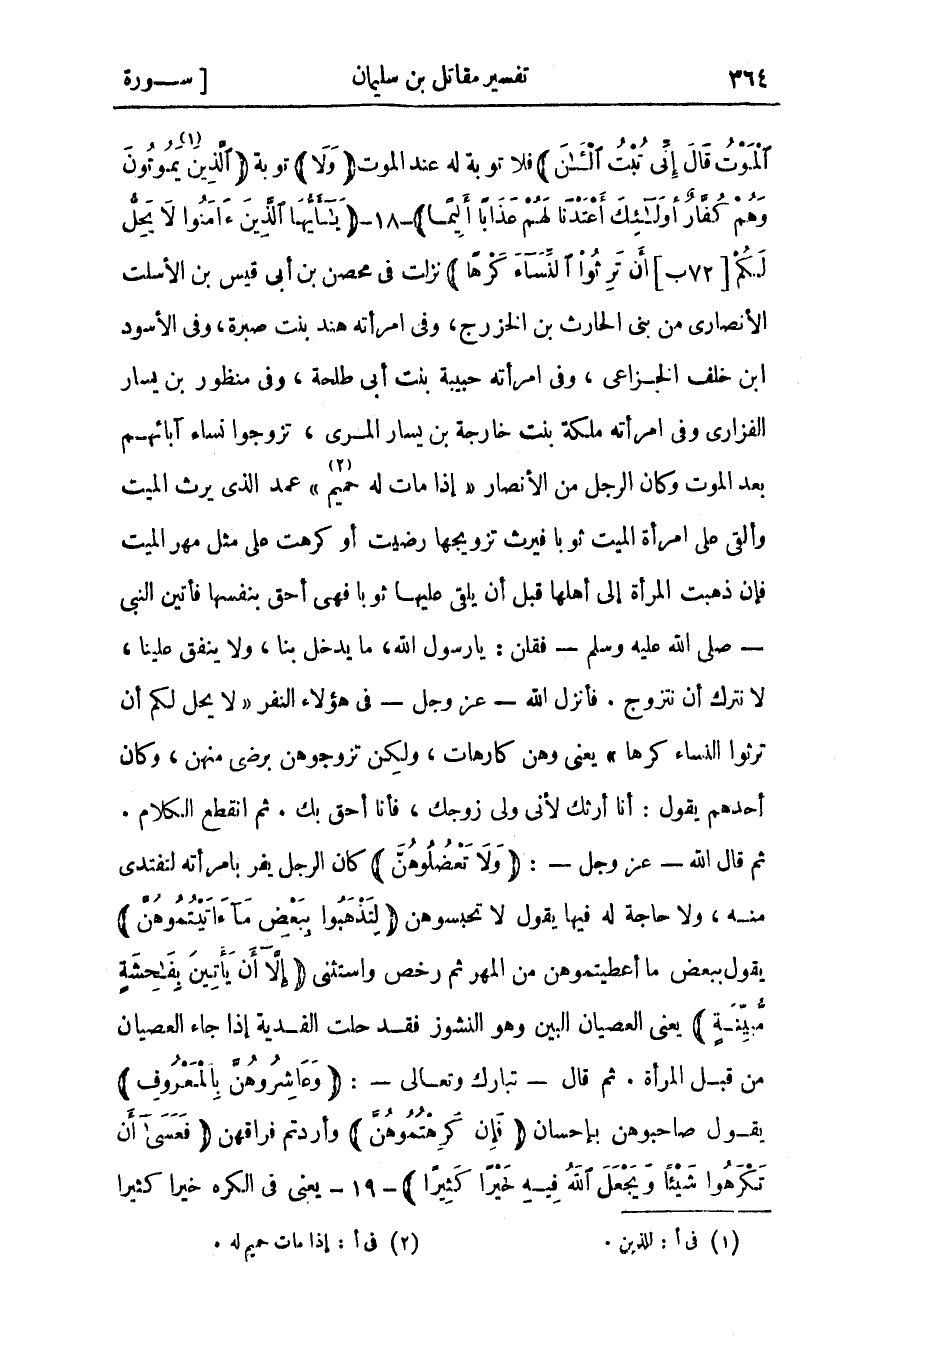 ٣٦٤ تفسير مقاتل بن سليمان [ ســورة
ٱلْمَوْتُ قَالَ إِنِّى تُبْتُ ٱلْـَٔـٰنَ ) فلا توبة له عند الموت ( وَلَا ) توبة ( ٱلَّذِينَ (١) يَمُوتُونَ
وَهُمْ كُفَّارٌ أُولَـٰٓئِكَ أَعْتَدْنَا لَهُمْ عَذَابًا أَلِيمًـا ) - ١٨ - ( يَـٰٓأَيُّهَا ٱلَّذِينَ ءَامَنُوا لَا يَحِلُّ
لَـكُمْ [ ٧٢ب ] أَن تَرِثُوا۟ ٱلنِّسَآءَ كَرْهًا ) نزلت فى محصن بن أبى قيس بن الأسلت
الأنصارى من بنى الحارث بن الخزرج، وفى امرأته هند بنت صبرة، وفى الأسود
ابن خلف الخـزاعى ، وفى امرأته حبيبة بنت أبى طلحة ، وفى منظور بن يسار
الفزارى وفى امرأته ملكة بنت خارجة بن يسار المـرى ، تزوجوا نساء آبائهـم
بعد الموت وكان الرجل من الأنصار « إذا مات له حميم (٢) » عمد الذى يرث الميت
وألقى على امرأة الميت ثوبا فيرث تزويجها رضيت أو كرهت على مثل مهر الميت
فإن ذهبت المرأة إلى أهلها قبل أن يلقى عليهـا ثوبا فهى أحق بنفسها فأتين النبى
— صلى الله عليه وسلم — فقلن : يارسول الله، ما يدخل بنا ، ولا ينفق علينا ،
لا نترك أن نتزوج . فأنزل الله — عز وجل — فى هؤلاء النفر « لا يحل لكم أن
ترثوا النساء كرها » يعنى وهن كارهات ، ولكن تزوجوهن برضى منهن ، وكان
أحدهم يقول : أنا أرثك لأنى ولى زوجك ، فأنا أحق بك . ثم انقطع الكلام .
ثم قال الله — عز وجل — : ( وَلَا تَعْضُلُوهُنَّ ) كان الرجل يفر بامرأته لتفتدى
منـه ، ولا حاجة له فيها يقول لا تحبسوهن ( لِتَذْهَبُوا بِبَعْضِ مَـآ ءَاتَيْتُمُوهُنَّ )
يقول ببعض ما أعطيتموهن من المهر ثم رخص واستثنى ( إِلَّآ أَن يَأْتِينَ بِفَـٰحِشَةٍ
مُّبَيِّنَـةٍ ) يعنى العصيان البين وهو النشوز فقـد حلت الفـدية إذا جاء العصيان
من قبـل المرأة . ثم قال — تبارك وتعـالى — : ( وَعَاشِرُوهُنَّ بِالْمَعْرُوفِ )
يقـول صاحبوهن بإحسان ( فَإِن كَرِهْتُمُوهُنَّ ) وأردتم فراقهن ( فَعَسَىٰٓ أَن
تَـكْرَهُوا شَيْئًا وَيَجْعَلَ ٱللَّهُ فِيـهِ خَيْرًا كَثِيرًا ) - ١٩ - يعنى فى الكره خيرا كثيرا
(١) فى أ : للذين .
(٢) فى أ : إذا مات حميم له .